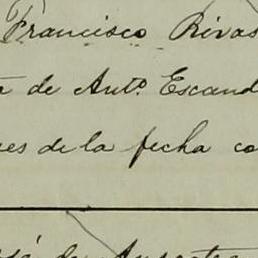 Francisco Rivas
a de Anto. Escand
es de la fecha co
de